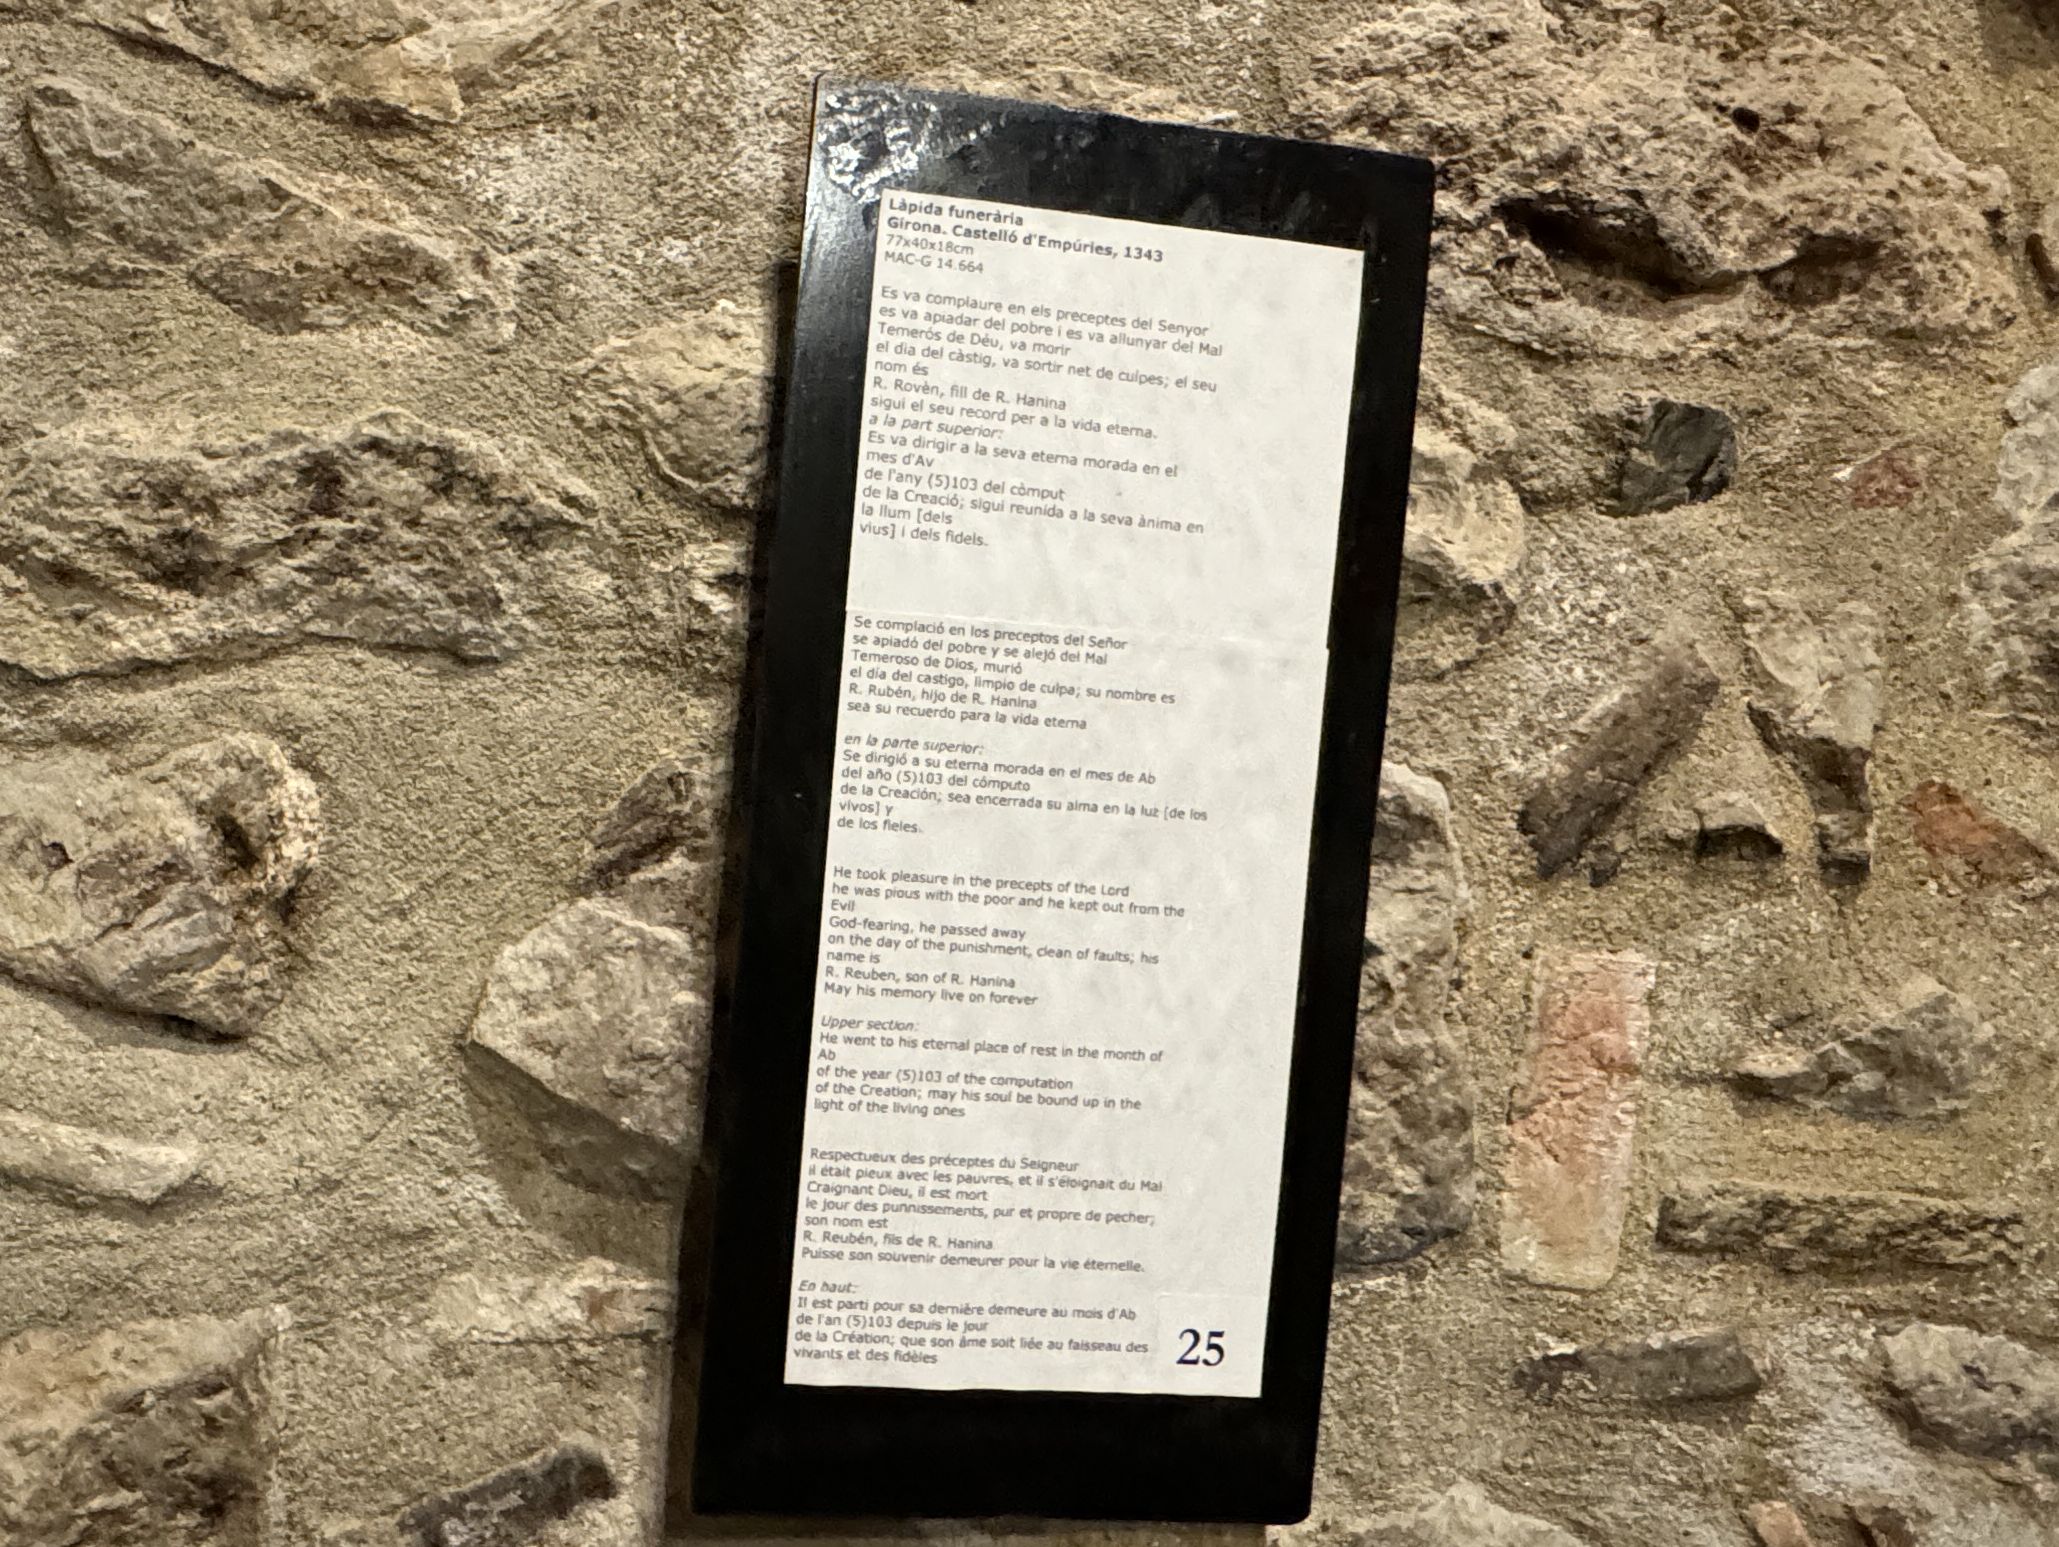 Làpida funerària
Girona. Castelló d'Empúries, 1343
77x40x18cm
MAC-G 14.664
Es va complaure en els preceptes del Senyor
es va apiadar del pobre i es va allunyar del Mal
Temerós de Déu, va morir
el dia del càstig, va sortir net de culpes; el seu
nom és
R. Rovèn, fill de R. Hanina
sigui el seu record per a la vida eterna.
a la part superior:
Es va dirigir a la seva eterna morada en el
mes d'Av
de l'any (5)103 del còmput
de la Creació; sigui reunida a la seva ànima en
la llum [dels
vius] i dels fidels.
Se complació en los preceptos del Señor
se apiadó del pobre y se alejó del Mal
Temeroso de Dios, murió
el día del castigo, limpio de culpa; su nombre es
R. Rubén, hijo de R. Hanina
sea su recuerdo para la vida eterna
en la parte superior:
Se dirigió a su eterna morada en el mes de Ab
del año (5)103 del cómputo
de la Creación; sea encerrada su alma en la luz [de los
vivos] y
de los fieles.
He took pleasure in the precepts of the Lord
he was pious with the poor and he kept out from the
Evil
God-fearing, he passed away
on the day of the punishment, clean of faults; his
name is
R. Reuben, son of R. Hanina
May his memory live on forever
Upper section:
He went to his eternal place of rest in the month of
Ab
of the year (5)103 of the computation
of the Creation; may his soul be bound up in the
light of the living ones
Respectueux des préceptes du Seigneur
il était pieux avec les pauvres, et il s'éloignait du Mal
Craignant Dieu, il est mort
le jour des punnissements, pur et propre de pecher;
son nom est
R. Reubén, fils de R. Hanina
Puisse son souvenir demeurer pour la vie éternelle.
En haut:
Il est parti pour sa dernière demeure au mois d'Ab
de l'an (5)103 depuis le jour
de la Création; que son âme soit liée au faisseau des
vivants et des fidèles
25